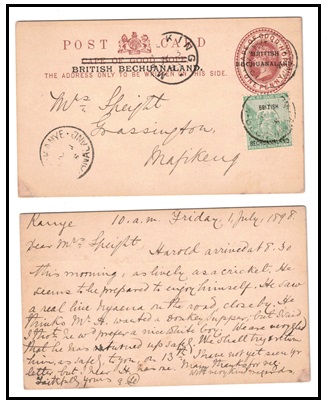 POST CARD
CAPE OF GOOD HOPE
BRITISH BECHUANALAND.
THE ADDRESS ONLY TO BE WRITTEN ON THIS SIDE.
BRITISH
BECHUANALAND.
ONE PENNY
BRITISH
BECHUANALAND
KANYE
Mrs Speight
Mafikeng
Kanye 10.a.m. Friday, 1, July, 1898
Dear Mrs Speight,
Harold arrived at 8.30
this morning, as lively as a cricket. He
seems to be prepared to enjoy himself. He saw
a real live hyaena on the road, close by. He
thinks Mr H. wanted a Donkey supper, but said
prefer a nice white boy. We are very glad
that he has returned up safely. We shall try & return
him, as safely, to you, on 13th. I have not yet seen yr
letter but has it has me. Many thanks for
Faithfully yours with very kind regards